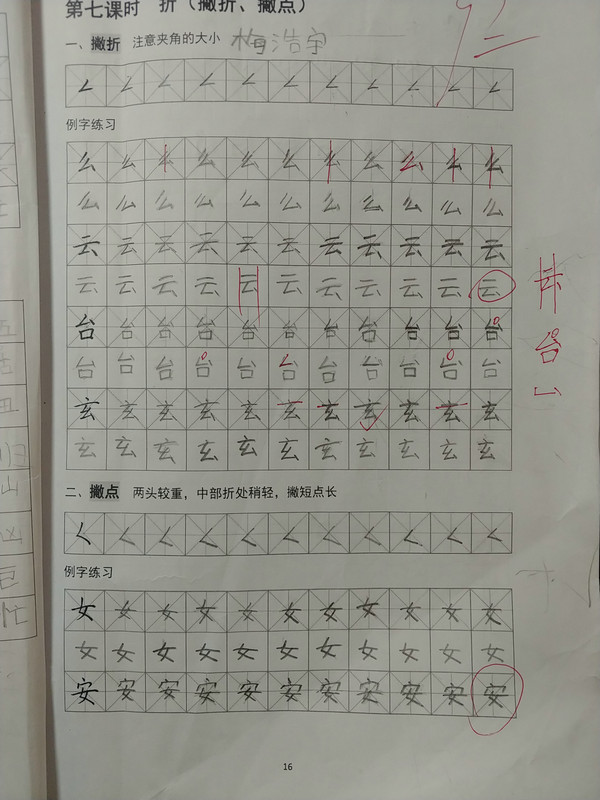 第七课时 折（撇折、撇点）
一、撇折 注意夹角的大小 梅浩宇
𠃋 𠃋 𠃋 𠃋 𠃋 𠃋 𠃋 𠃋 𠃋 𠃋 𠃋
例字练习
么 么 么 么 么 么 么 么 么 么 么
么 么 么 么 么 么 么 么 么 么 么
云 云 云 云 云 云 云 云 云 云 云
云 云 云 云 云 云 云 云 云 云 云
云
台 台 台 台 台 台 台 台 台 台 台
台 台 台 台 台 台 台 台 台 台 台
台
玄 玄 玄 玄 玄 玄 玄 玄 玄 玄 玄
玄 玄 玄 玄 玄 玄 玄 玄 玄 玄 玄
二、撇点 两头较重，中部折处稍轻，撇短点长
𡿨 𡿨 𡿨 𡿨 𡿨 𡿨 𡿨 𡿨 𡿨 𡿨 𡿨
例字练习
女 女 女 女 女 女 女 女 女 女 女
女 女 女 女 女 女 女 女 女 女 女
安 安 安 安 安 安 安 安 安 安 安
16
归
山
凶
巨
忙